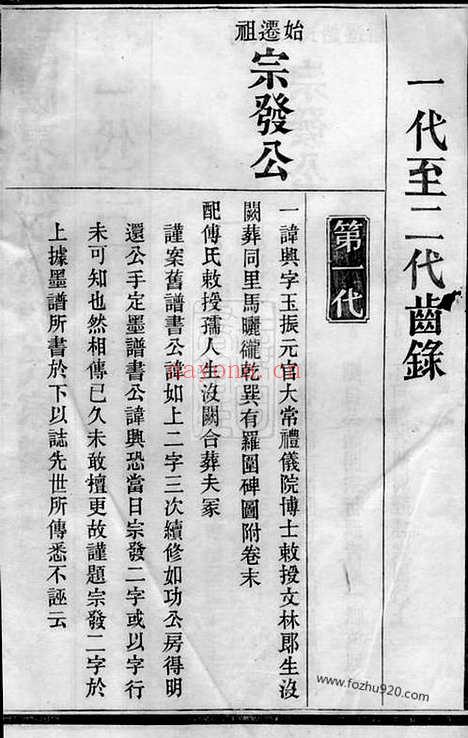 一代至二代齒錄
第一代
始遷祖
宗發公
一諱興字玉振元官大常禮儀院博士敕授文林郎生沒
闕葬同里馬曬巄乾巽有羅圍碑圖附卷末
配傅氏敕授孺人生沒闕合葬夫冢
謹案舊譜書公諱如上二字三次續修如功公房得明
還公手定墨譜書公諱興恐當日宗發二字或以字行
未可知也然相傳已久未敢擅更故謹題宗發二字於
上據墨譜所書於下以誌先世所傳悉不誣云
nayona.cn
www.fozhu920.com